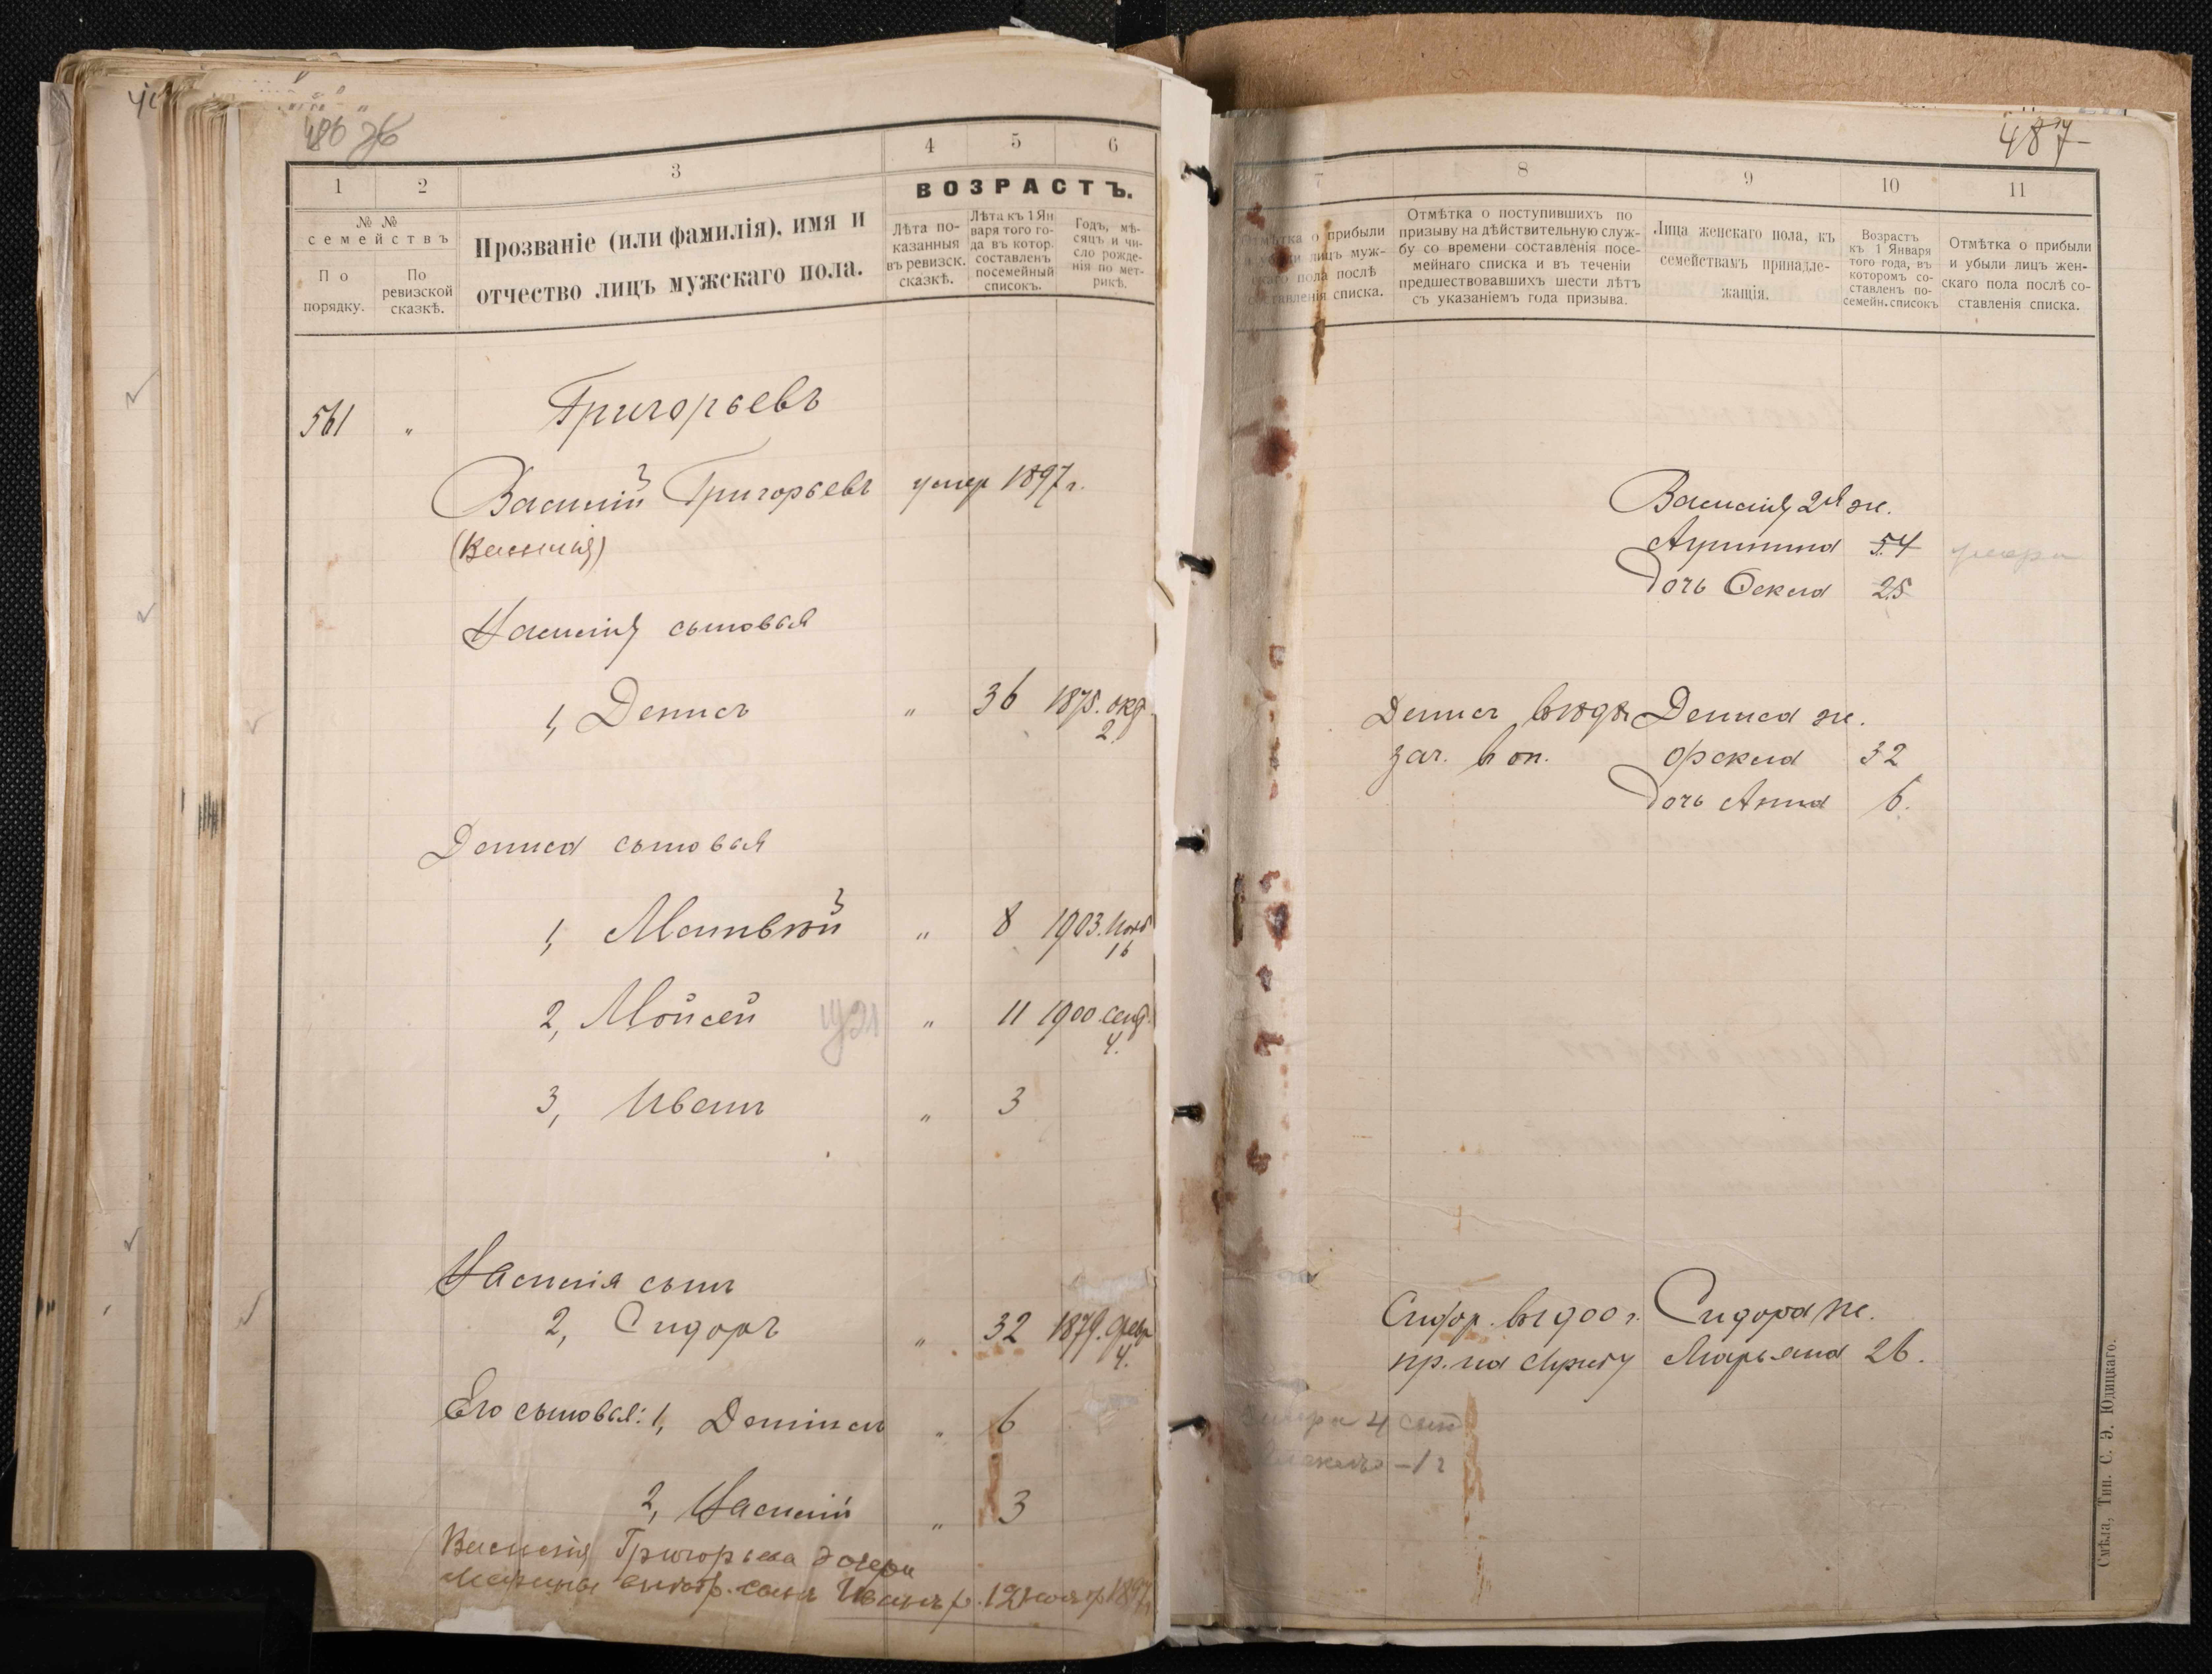 486 об
1
2
3
4
5
6
№ №
семействъ
По
порядку.
По
ревизской
сказкѣ.
Прозваніе (или фамилія), имя и
отчество лицъ мужскаго пола.
ВОЗРАСТЪ.
Лѣта по-
казанныя
въ ревизск.
сказкѣ.
Лѣта къ 1 Ян
варя того го-
да въ котор.
составленъ
посемейный
списокъ.
Годъ, мѣ-
сяцъ и чи-
сло рожде-
нія по мет-
рикѣ.
561 „ Григорьевъ
Василій Григорьевъ умер 1897 г.
(Василія)
Василія сыновья
1, Денисъ „ 36 1875. окт.
2.
Дениса сыновья
1, Матвѣй „ 8 1903. Нояб
16
2, Мойсей „ 11 1900. сент.
4.
3, Иванъ „ 3
Василія сынъ
2, Сидоръ „ 32 1879. Февр
4.
Его сыновья: 1, „ 6
2, Василій „ 3
Василія Григорьева дочери
сынъ Иванъ р. 12 1897
487
7
8
9
10
11
Отмѣтка о прибыли
и убыли лицъ муж-
скаго пола послѣ
составленія списка.
Отмѣтка о поступившихъ по
призыву на дѣйствительную служ-
бу со времени составленія посе-
мейнаго списка и въ теченіи
предшествовавшихъ шести лѣтъ
съ указаніемъ года призыва.
Лица женскаго пола, къ
семействамъ принадле-
жащія.
Возрастъ
къ 1 Января
того года, въ
которомъ со-
ставленъ по-
семейн. списокъ
Отмѣтка о прибыли
и убыли лицъ жен-
скаго пола послѣ со-
ставленія списка.
Василія 2я ж.
54 умерла
Дочь Фекла 25
Денисъ Дениса ж.
зач. в оп. Фекла 32
Дочь Анна 6.
Сидор. в 1900 г. Сидора ж.
пр. на службу Марьяна 26.
4
– 1 г
Смѣла, Тип. С. Э. Юдицкаго.